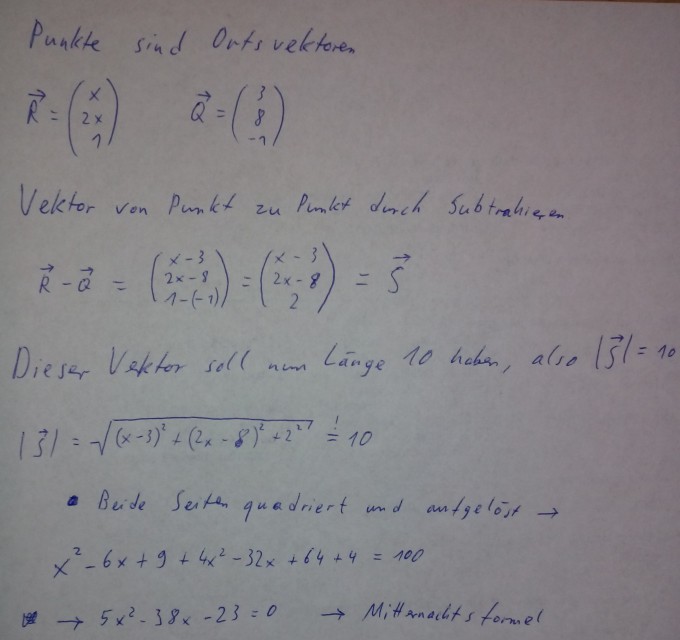 Punkte sind Ortsvektoren
R⃗ = (x, 2x, 1) Q⃗ = (3, 8, -1)
Vektor von Punkt zu Punkt durch Subtrahieren
R⃗ - Q⃗ = (x-3, 2x-8, 1-(-1)) = (x-3, 2x-8, 2) = S⃗
Dieser Vektor soll nun Länge 10 haben, also |S⃗| = 10
|S⃗| = √((x-3)² + (2x-8)² + 2²) =! 10
• Beide Seiten quadriert und aufgelöst →
x² - 6x + 9 + 4x² - 32x + 64 + 4 = 100
→ 5x² - 38x - 23 = 0 → Mitternachtsformel